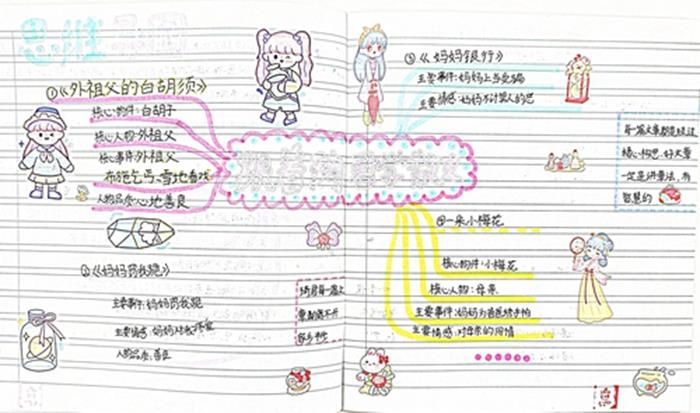 思维
①《外祖父的白胡须》
核心物件:白胡子
核心人物:外祖父
核心事件:外祖父
布施乞丐、雪地看戏
人物品质:心地善良
②《妈妈罚我跪》
主要事件:妈妈罚我跪
主要情感:妈妈
人物品质:善良
③《妈妈银行》
主要事件:妈妈上当受骗
主要情感:妈妈不计某人的恶
每一篇文章都是经过
精心构思,好文章
一定是讲章法,有
智慧的
④一朵小梅花
核心物件:小梅花
核心人物:母亲
主要事件:妈妈为爸爸绣手帕
主要情感:对母亲的同情